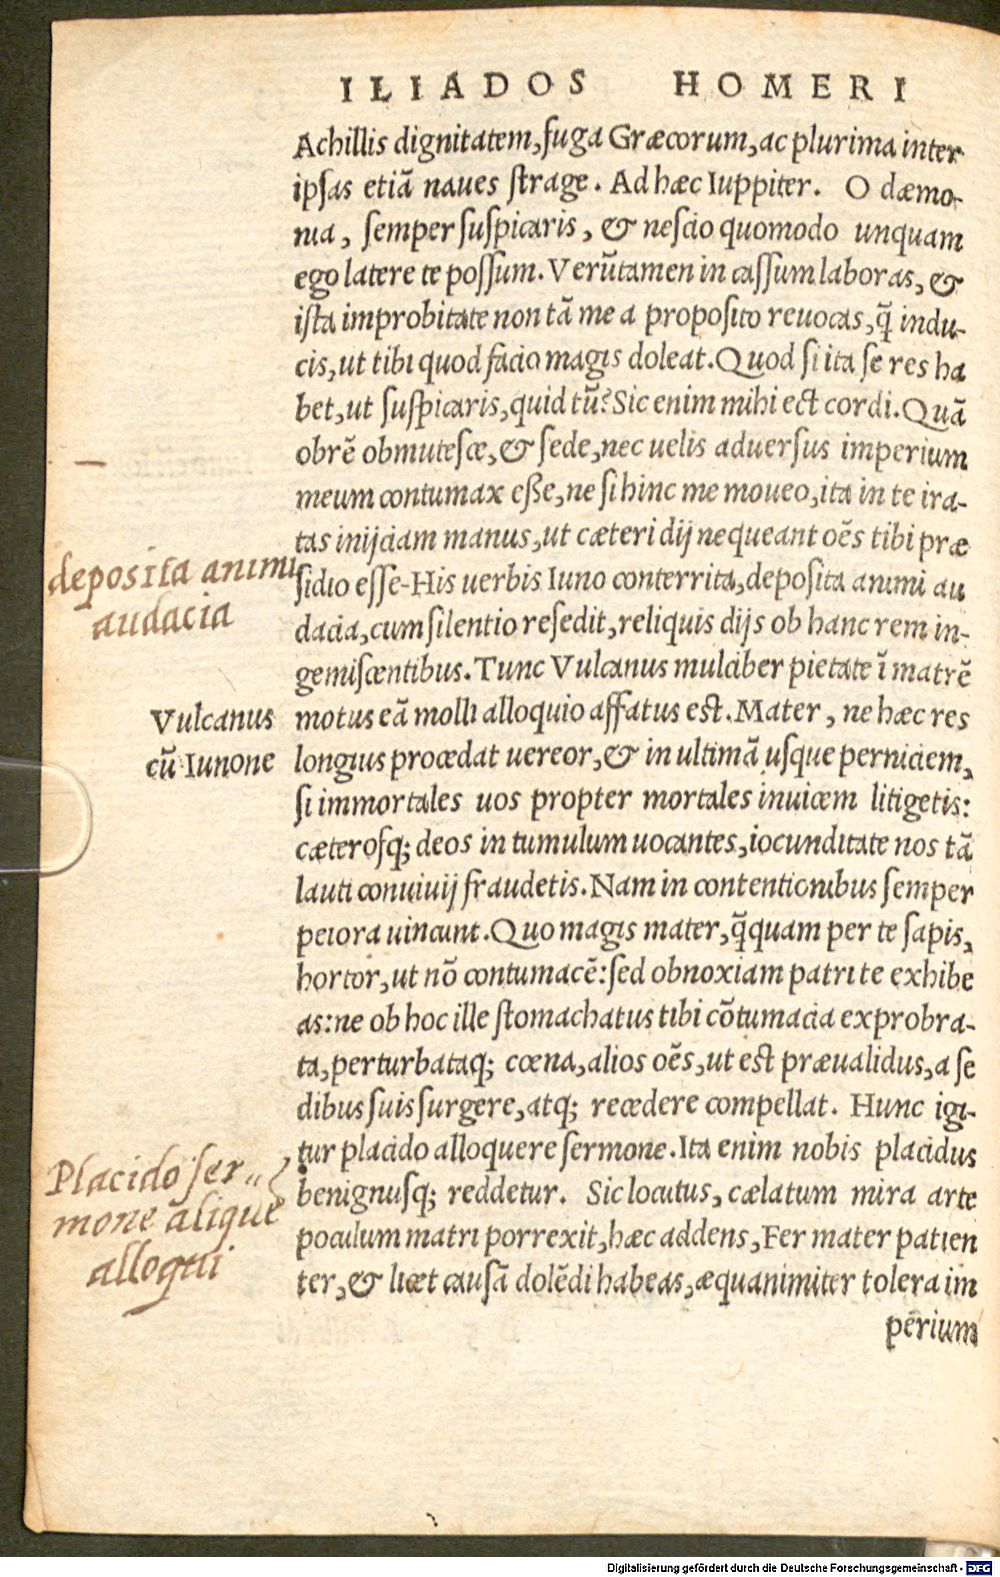 ILIADOS HOMERI
Achillis dignitatem, fuga Græcorum, ac plurima inter
ipsas etiā naues strage. Ad hæc Iuppiter. O dæmo-
nia, semper suspicaris, & nescio quomodo unquam
ego latere te possum. Verūtamen in cassum laboras, &
ista improbitate non tā me a proposito reuocas, q̃ indu-
cis, ut tibi quod facio magis doleat. Quod si ita se res ha
bet, ut suspicaris, quid tū? Sic enim mihi est cordi. Quā
obrē obmutesce, & sede, nec uelis aduersus imperium
meum contumax eße, ne si hinc me moueo, ita in te ira-
tas inijciam manus, ut cæteri dij nequeant oẽs tibi præ
deposita animi
audacia
sidio esse. His uerbis Iuno conterrita, deposita animi au
dacia, cum silentio resedit, reliquis dijs ob hanc rem in-
gemiscentibus. Tunc Vulcanus mulciber pietate ī matrē
Vulcanus
cū Iunone
motus eā molli alloquio affatus est. Mater, ne hæc res
longius procedat uereor, & in ultimā usque perniciem,
si immortales uos propter mortales inuicem litigetis:
cæterosq; deos in tumulum uocantes, iocunditate nos tā
lauti conuiuij fraudetis. Nam in contentionibus semper
peiora uincunt. Quo magis mater, q̃quam per te sapis,
hortor, ut nō contumacē: sed obnoxiam patri te exhibe
as: ne ob hoc ille stomachatus tibi cōtumacia exprobra-
ta, perturbataq; cœna, alios oẽs, ut est præualidus, a se
dibus suis surgere, atq; recedere compellat. Hunc igi-
Placido ser-
mone alique
alloqui
tur placido alloquere sermone. Ita enim nobis placidus
benignusq; reddetur. Sic locutus, cælatum mira arte
poculum matri porrexit, hæc addens, Fer mater patien
ter, & licet causā dolēdi habeas, æquanimiter tolera im
perium
Digitalisierung gefördert durch die Deutsche Forschungsgemeinschaft - DFG